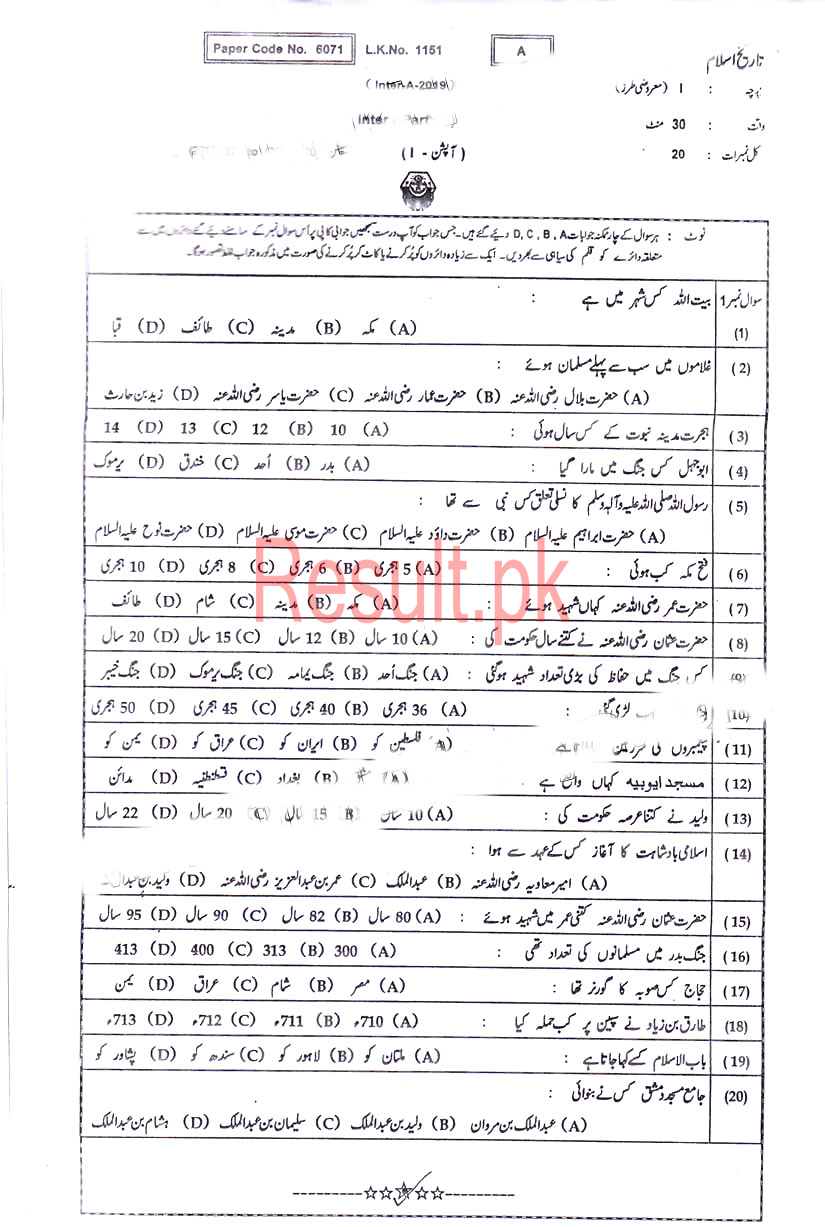 Paper Code No. 6071 L.K.No. 1151 A
تاریخ اسلام
(Inter-A-2019)
پرچہ : I (معروضی طرز)
وقت : 30 منٹ
Inter Part
کل نمبرات : 20 (آپشن - I)
نوٹ : ہر سوال کے چار ممکنہ جوابات D, C, B, A دیئے گئے ہیں۔ جس جواب کو آپ درست سمجھیں جوابی کاپی پر اُس سوال نمبر کے سامنے دیئے گئے دائروں میں سے
متعلقہ دائرے کو قلم کی سیاہی سے بھر دیں۔ ایک سے زیادہ دائروں کو پُر کرنے یا کاٹ کر پُر کرنے کی صورت میں مذکورہ جواب غلط تصور ہوگا۔
سوال نمبر 1 بیت اللہ کس شہر میں ہے :
(1) (A) مکہ (B) مدینہ (C) طائف (D) قبا
(2) غلاموں میں سب سے پہلے مسلمان ہوئے :
(A) حضرت بلال رضی اللہ عنہ (B) حضرت عمار رضی اللہ عنہ (C) حضرت یاسر رضی اللہ عنہ (D) زید بن حارث
(3) ہجرت مدینہ نبوت کے کس سال ہوئی : (A) 10 (B) 12 (C) 13 (D) 14
(4) ابوجہل کس جنگ میں مارا گیا : (A) بدر (B) اُحد (C) خندق (D) یرموک
(5) رسول اللہ صلی اللہ علیہ وآلہ وسلم کا نسلی تعلق کس نبی سے تھا :
(A) حضرت ابراہیم علیہ السلام (B) حضرت داؤد علیہ السلام (C) حضرت موسی علیہ السلام (D) حضرت نوح علیہ السلام
(6) فتح مکہ کب ہوئی : (A) 5 ہجری (B) 6 ہجری (C) 8 ہجری (D) 10 ہجری
(7) حضرت عمر رضی اللہ عنہ کہاں شہید ہوئے : (A) مکہ (B) مدینہ (C) شام (D) طائف
(8) حضرت عثمان رضی اللہ عنہ نے کتنے سال حکومت کی : (A) 10 سال (B) 12 سال (C) 15 سال (D) 20 سال
(9) کس جنگ میں حفاظ کی بڑی تعداد شہید ہوگئی : (A) جنگ اُحد (B) جنگ یمامہ (C) جنگ یرموک (D) جنگ خیبر
(10) لڑی گئی : (A) 36 ہجری (B) 40 ہجری (C) 45 ہجری (D) 50 ہجری
(11) پیغمبروں کی سرزمین (A) فلسطین کو (B) ایران کو (C) عراق کو (D) یمن کو
(12) مسجد ایوبیہ کہاں واقع ہے (A) (B) بغداد (C) قسطنطنیہ (D) مدائن
(13) ولید نے کتنا عرصہ حکومت کی : (A) 10 سال (B) 15 سال (C) 20 سال (D) 22 سال
(14) اسلامی بادشاہت کا آغاز کس کے عہد سے ہوا :
(A) امیر معاویہ رضی اللہ عنہ (B) عبدالملک (C) عمر بن عبدالعزیز رضی اللہ عنہ (D) ولید بن عبدالملک
(15) حضرت عثمان رضی اللہ عنہ کتنی عمر میں شہید ہوئے : (A) 80 سال (B) 82 سال (C) 90 سال (D) 95 سال
(16) جنگ بدر میں مسلمانوں کی تعداد تھی : (A) 300 (B) 313 (C) 400 (D) 413
(17) حجاج کس صوبہ کا گورنر تھا : (A) مصر (B) شام (C) عراق (D) یمن
(18) طارق بن زیاد نے سپین پر کب حملہ کیا : (A) 710ء (B) 711ء (C) 712ء (D) 713ء
(19) باب الاسلام کسے کہا جاتا ہے : (A) ملتان کو (B) لاہور کو (C) سندھ کو (D) پشاور کو
(20) جامع مسجد دمشق کس نے بنوائی :
(A) عبدالملک بن مروان (B) ولید بن عبدالملک (C) سلیمان بن عبدالملک (D) ہشام بن عبدالملک
Result.pk